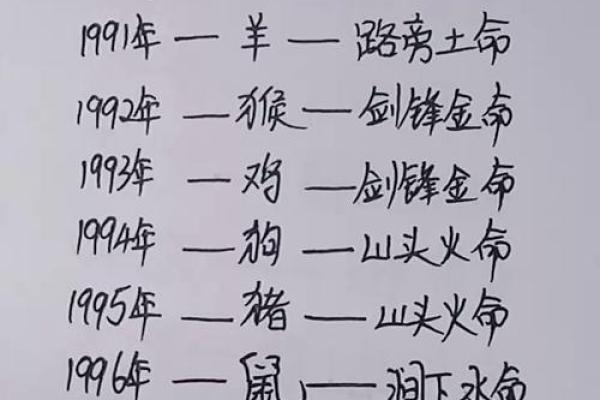 1991年—羊—路旁土命
1992年—猴—剑锋金命
1993年—鸡—剑锋金命
1994年—狗—山头火命
1995年—猪—山头火命
1996年—鼠—涧下水命